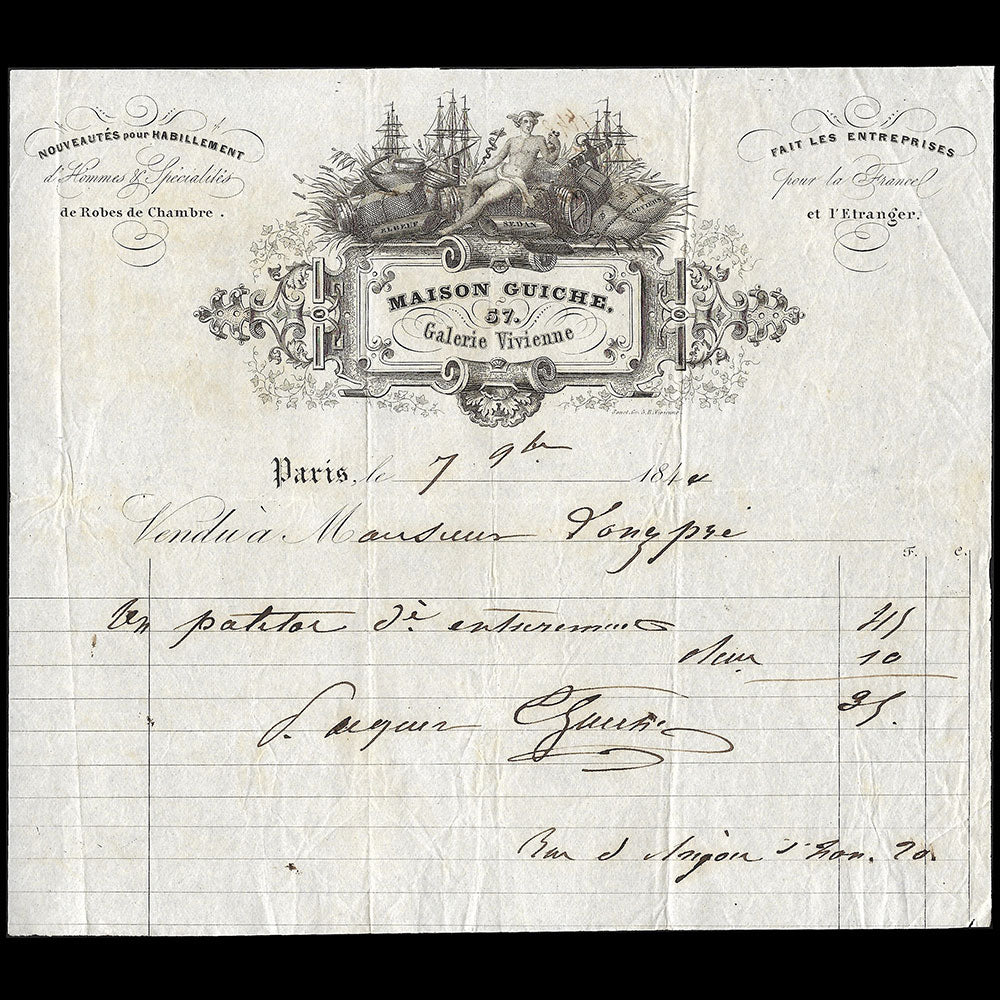 NOUVEAUTÉS pour HABILLEMENT
d'Hommes & Spécialités
de Robes de Chambre.
FAIT LES ENTREPRISES
pour la France
et l'Etranger.
ELBEUF
SEDAN
LOUVIERS
MAISON GUICHE,
57.
Galerie Vivienne
Paris, le 7 9bre 184
Vendu à Monsieur Longpré
F. C.
Un paletot 45
10
35.
P. acquit Guiche
Rue d'Anjou St hon. 20.